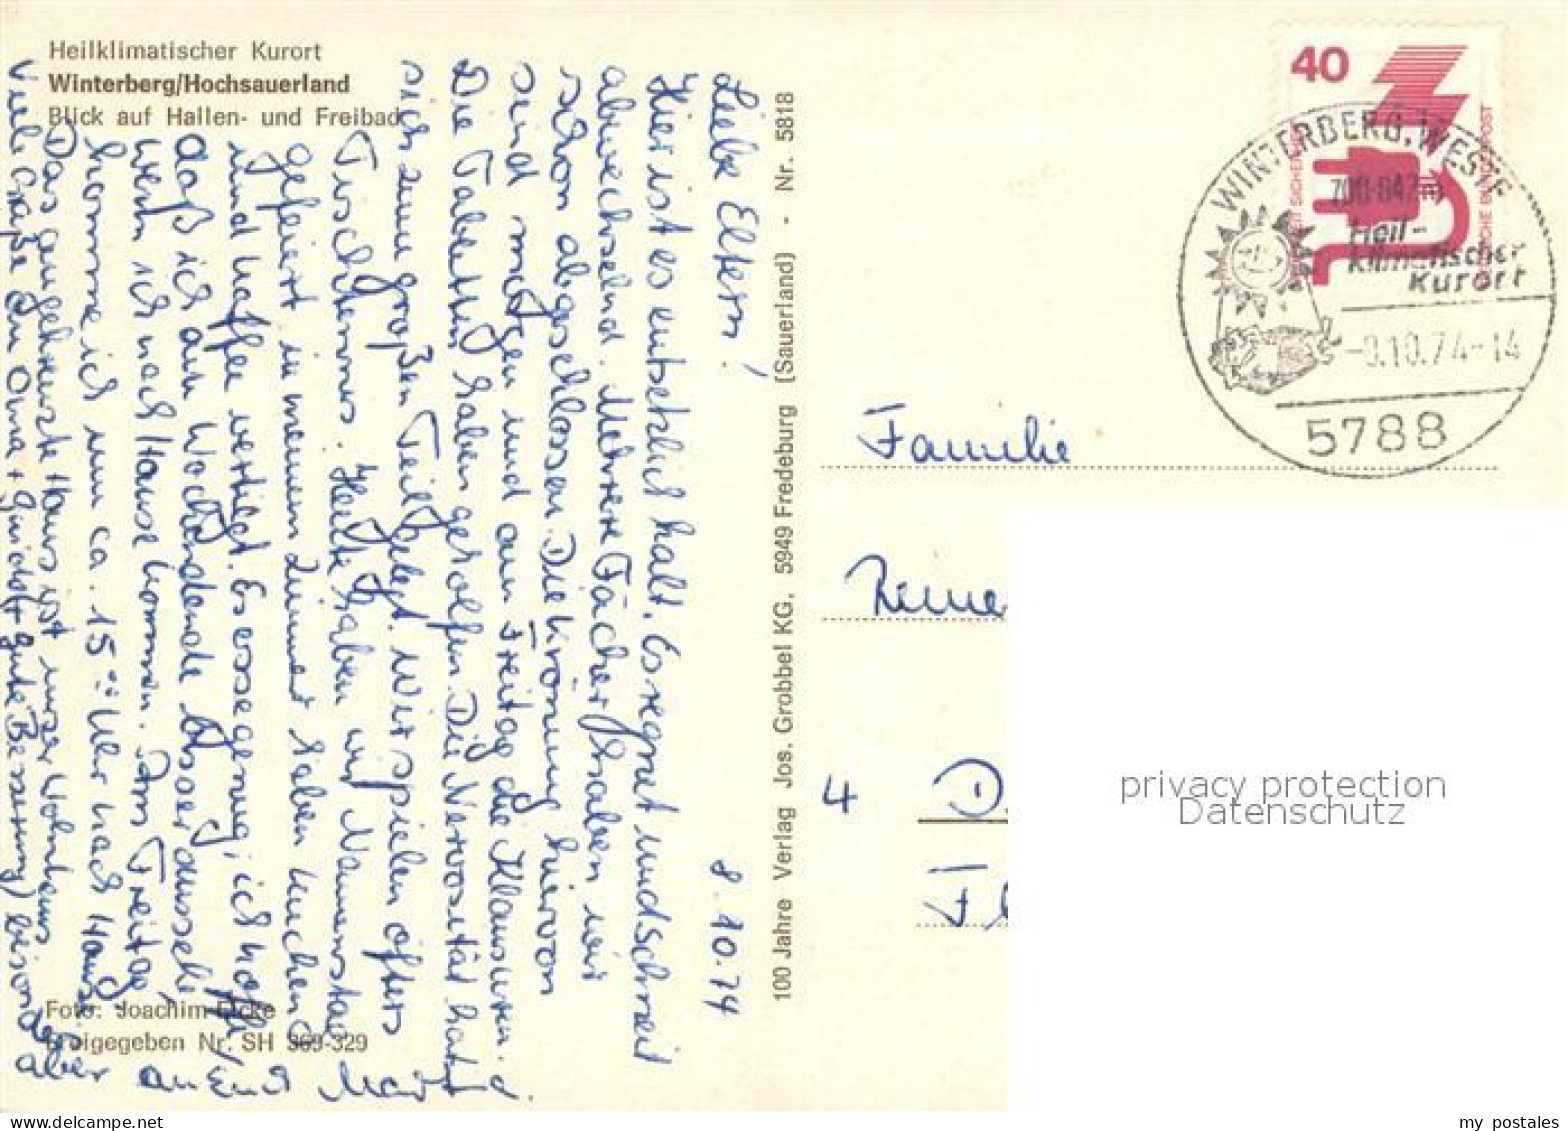 Heilklimatischer Kurort
Winterberg/Hochsauerland
Blick auf Hallen- und Freibad
8.10.74
Liebe Eltern!
Hier ist es entsetzlich kalt. Es regnet und schneit
abwechselnd. Mehrere Fächer haben wir
schon abgeschlossen. Die Krönung hiervon
sind morgen und am Freitag die Klausuren.
Die Tabletten haben geholfen. Die Nervosität hat
sich zum großen Teil gelegt. Wir spielen öfters
Tischtennis. Heute haben wir Namenstag
gefeiert in meinem Zimmer haben Kuchen
und Kaffee vertilgt. Es ersegenug, ich hoffe,
daß ich am Wochenende besser aussehe
wenn ich nach Hause komme. Am Freitag
komme ich um ca. 15°° Uhr nach Hause
Das angekreuzte Haus ist unser Wohnhaus
Viele Grüße an Oma + Guido (+ gute Besserung) besonders
aber an Euch
Foto: Joachim Eicke
Freigegeben Nr. SH 369-329
100 Jahre Verlag Jos. Grobbel KG, 5949 Fredeburg (Sauerland) - Nr. 5818
40
DEUTSCHE BUNDESPOST
WINTERBERG, WESTF
700-842m
Heil-
Klimatischer
Kurort
-9.10.74-14
5788
Familie
4
privacy protection
Datenschutz
my postales